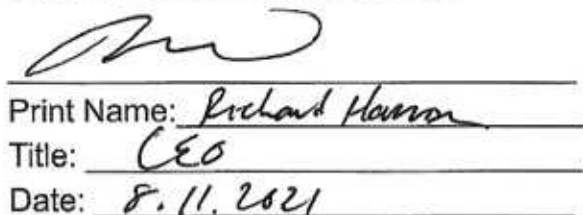 Print Name: Richard
Title: CEO
Date: 8.11.2021